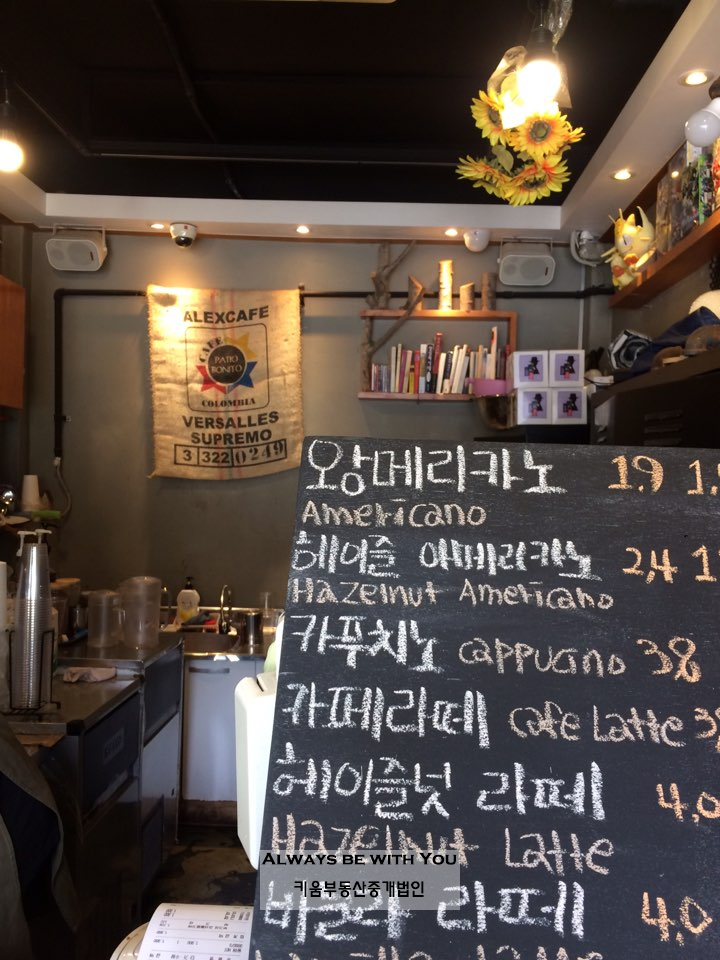 ALEXCAFE
CAFE
PATIO
BONITO
COLOMBIA
VERSALLES
SUPREMO
3 322 0249
왕메리카노 1.9
Americano
헤이즐 아메리카노 2,4
Hazelnut Americano
카푸치노 cappucino 3.8
카페라떼 cafe Latte
헤이즐넛 라떼 4,0
Hazelnut Latte
ALWAYS BE WITH YOU
키움부동산중개법인
바닐라 라떼 4.0